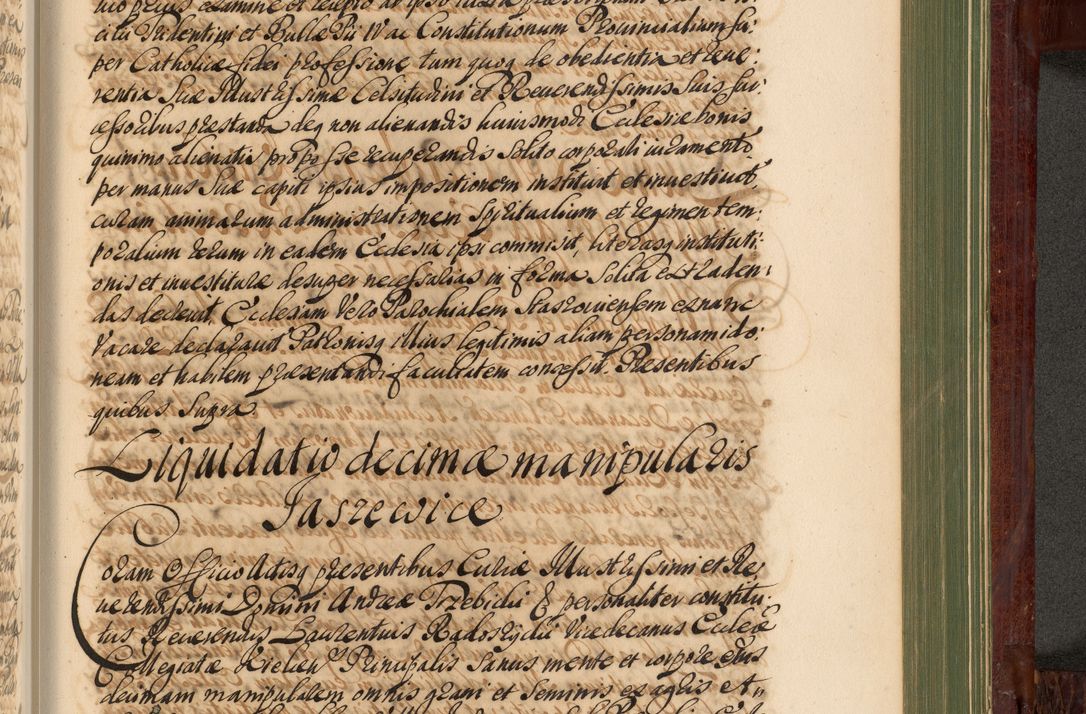 cilii Tridentini et Bullæ Pii IV ac Constitutionum Provincialium su:
per Catholicæ fidei professione tum quoq de obedientia et reve:
rentia Suæ Illustrissimæ Celsitudini et Reverendissimis Suis suc:
cessoribus præstanda deq non alienandis huiusmodi Ecclesiæ bonis
quinimo alienatis pro posse recuperandis Solito corporali iuramento
per manus Suæ capiti ipsius impositionem instituit et investivit,
curam animarum administrationem Spiritualium et regimen tem:
poralium rerum in eadem Ecclesia ipsi commisit, literasq instituti:
onis et investituræ desuper necessarias in forma Solita extraden:
das decrevit. Ecclesiam Vero Parochialem Staszoviensem ex nunc
Vacare declaravit Patronisq illius legitimis aliam personam ido:
neam et habilem præsentandi facultatem concessit. Præsentibus
quibus Supra
Liquidatio decimæ manipularis
Jasrewice
Coram Officio Actisq præsentibus Curiæ Illustrissimi et Re:
verendissimi Domini Andreæ Trzebicki & personaliter constitu:
tus Reverendus Laurentius Radoszycki Vicedecanus Ecclesiæ
Collegiatæ Kielcen Principalis Sanus mente et corpore eius
decimam manipularem omnis grani et Seminis ex agris et A..